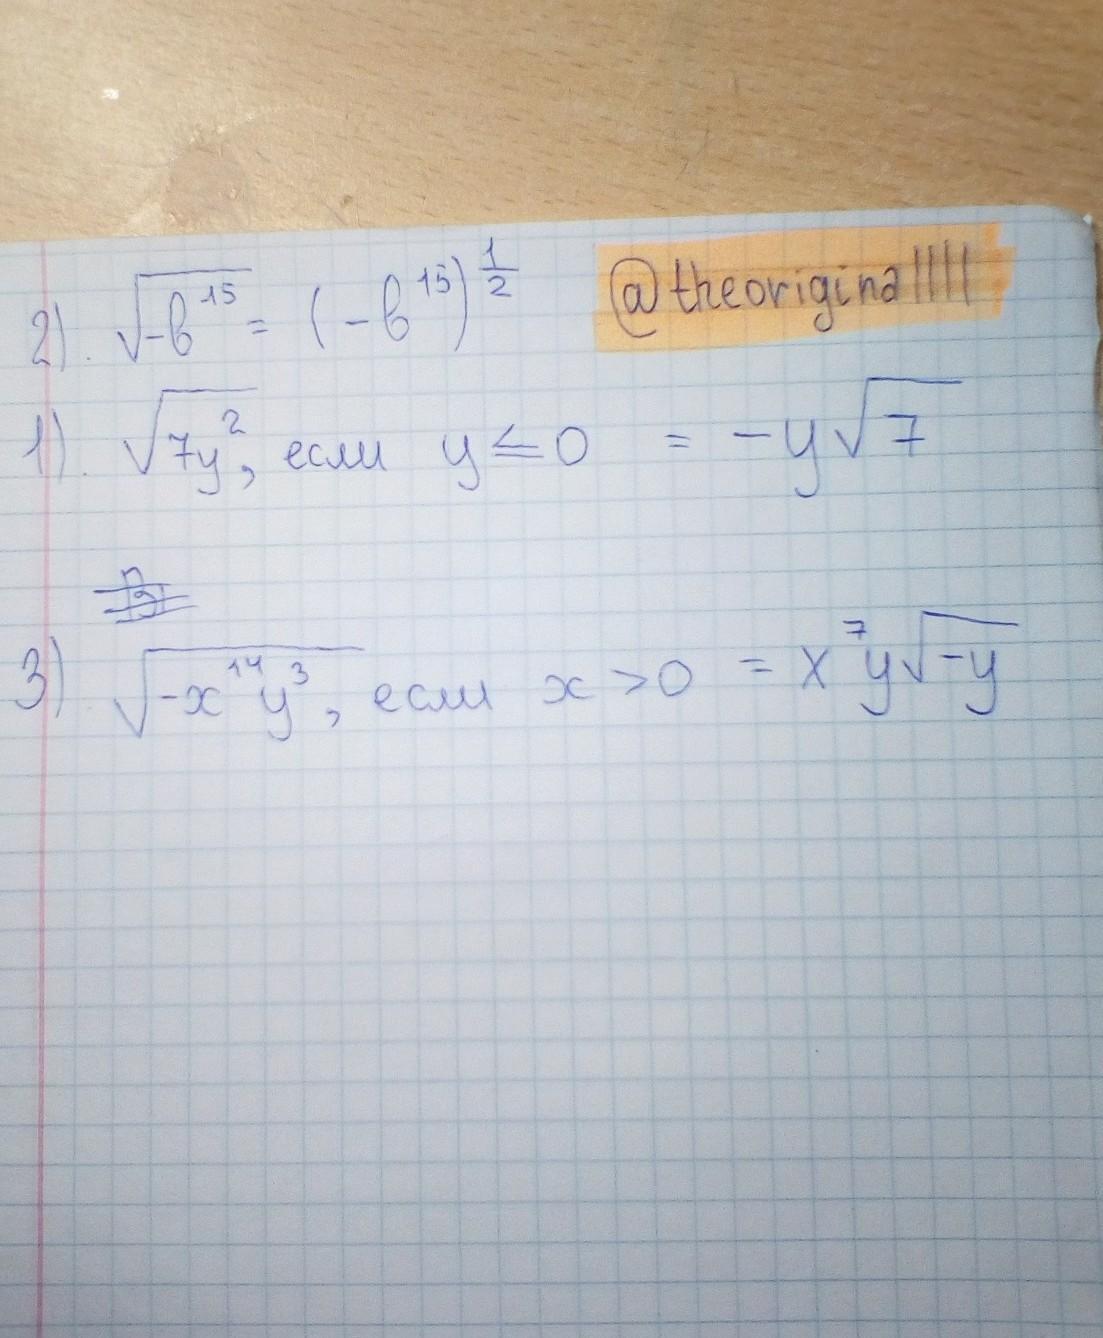 2). √-b¹⁵ = (-b¹⁵)^½ @theorigina||||
1). √7y², если y ≤ 0 = -y√7
3) √-x¹⁴y³, если x > 0 = x⁷y√-y